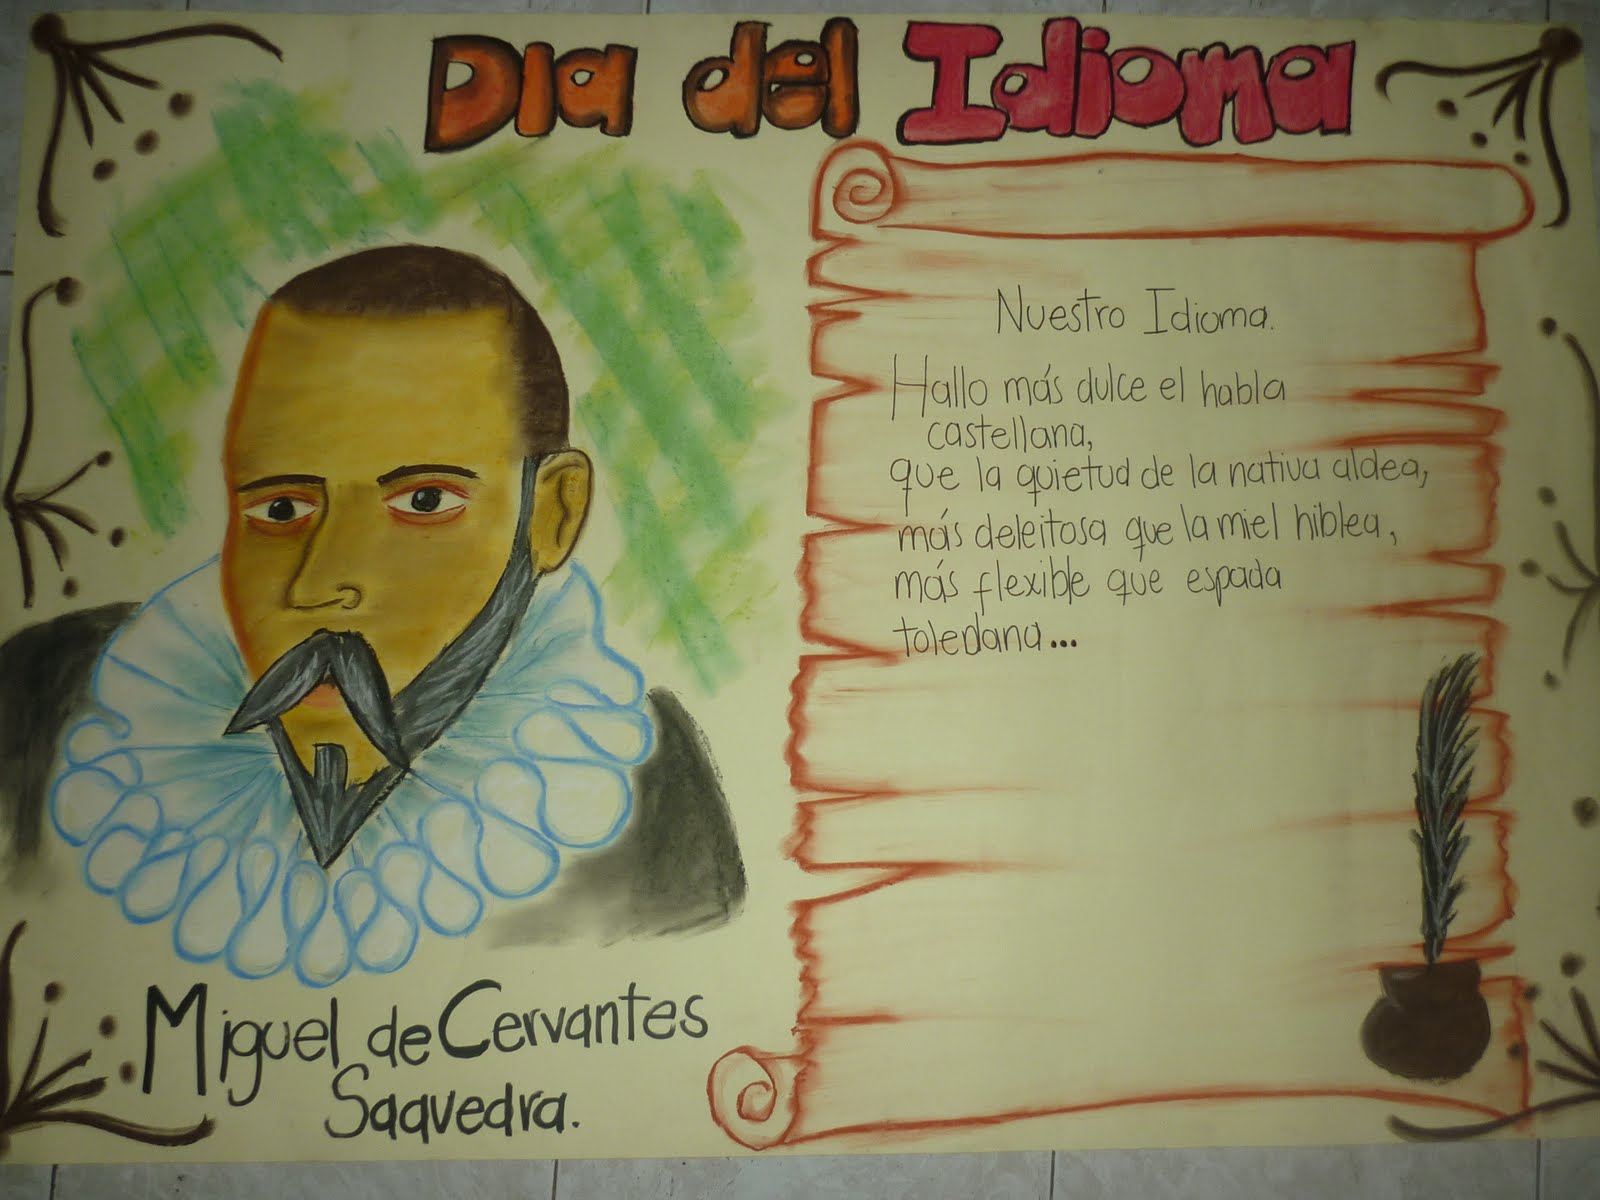 Dia del Idioma
Nuestro Idioma.
Hallo más dulce el habla
castellana,
que la quietud de la nativa aldea,
más deleitosa que la miel hiblea,
más flexible que espada
toledana...
Miguel de Cervantes
Saavedra.